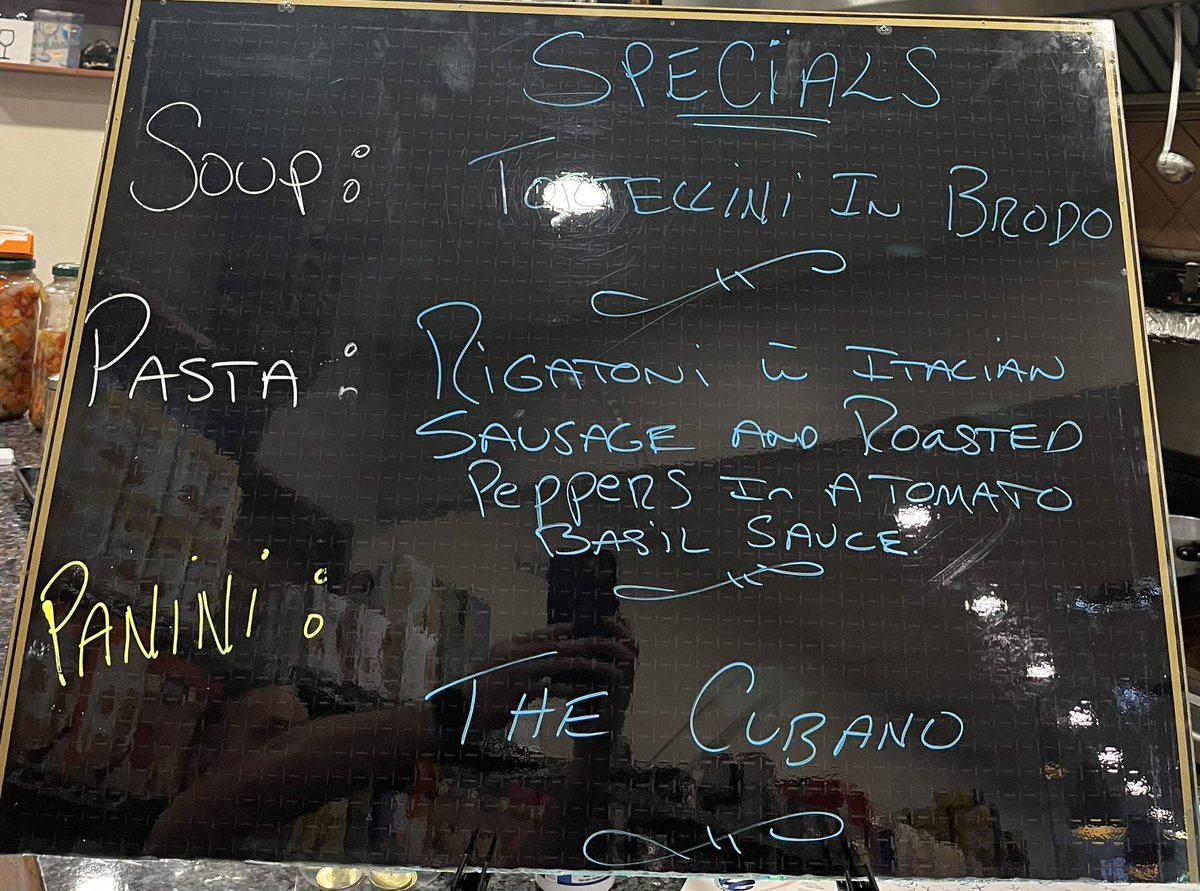 SPECIALS
Soup: TORTELLINI IN BRODO
PASTA: RIGATONI w̄ ITALIAN
SAUSAGE AND ROASTED
PEPPERS In A TOMATO
BASIL SAUCE.
PANINI:
THE CUBANO